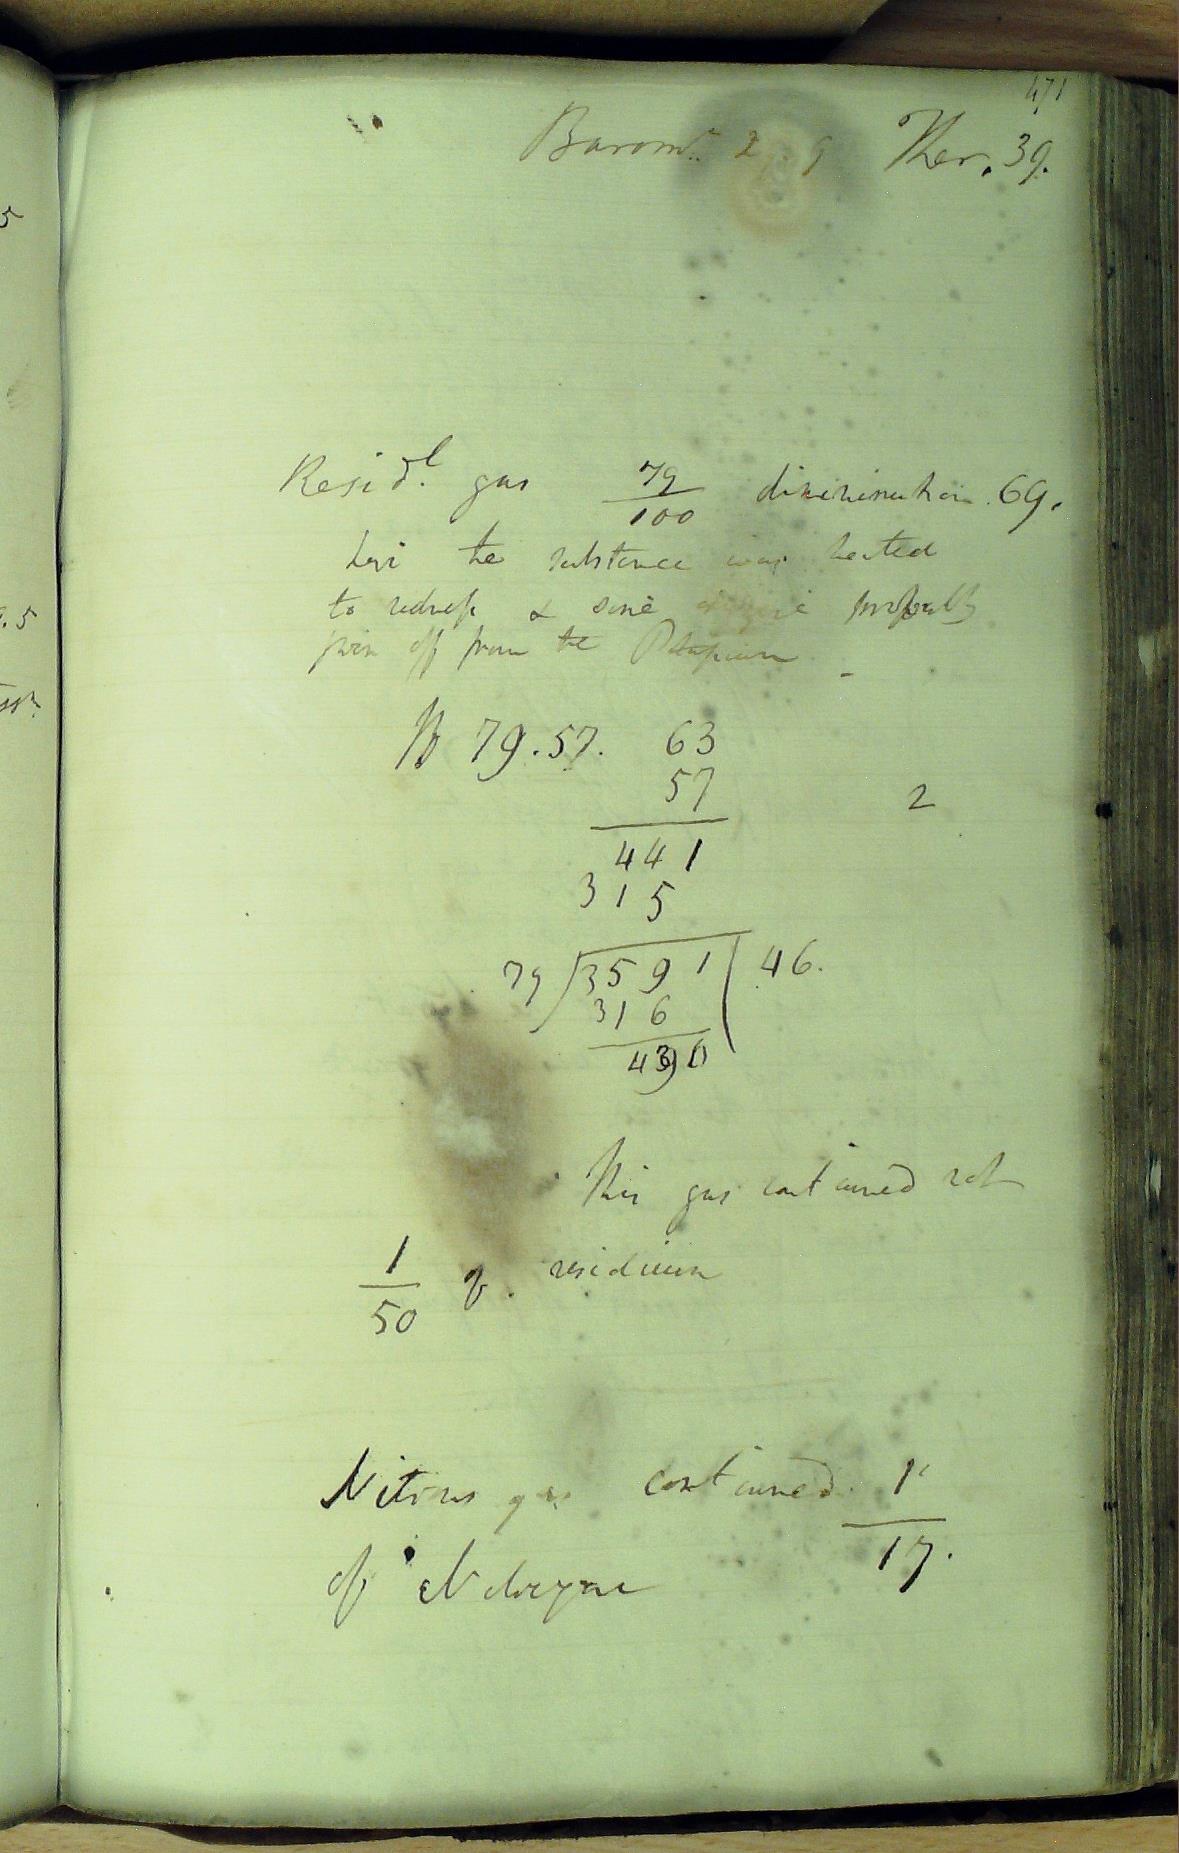 471
Barom.r 29.9 Ther. 39.
5
Resid.l gas 79/100 diminution 69.
here the substance was heated
9.5
to redness & some oxygene probably
given off from the Potassium
N 79.57. 63
57
2
441
315
79 3591 46.
316
4390
This gas contained not
1/50 of residuum
Nitrous gas contained 1
17.
of